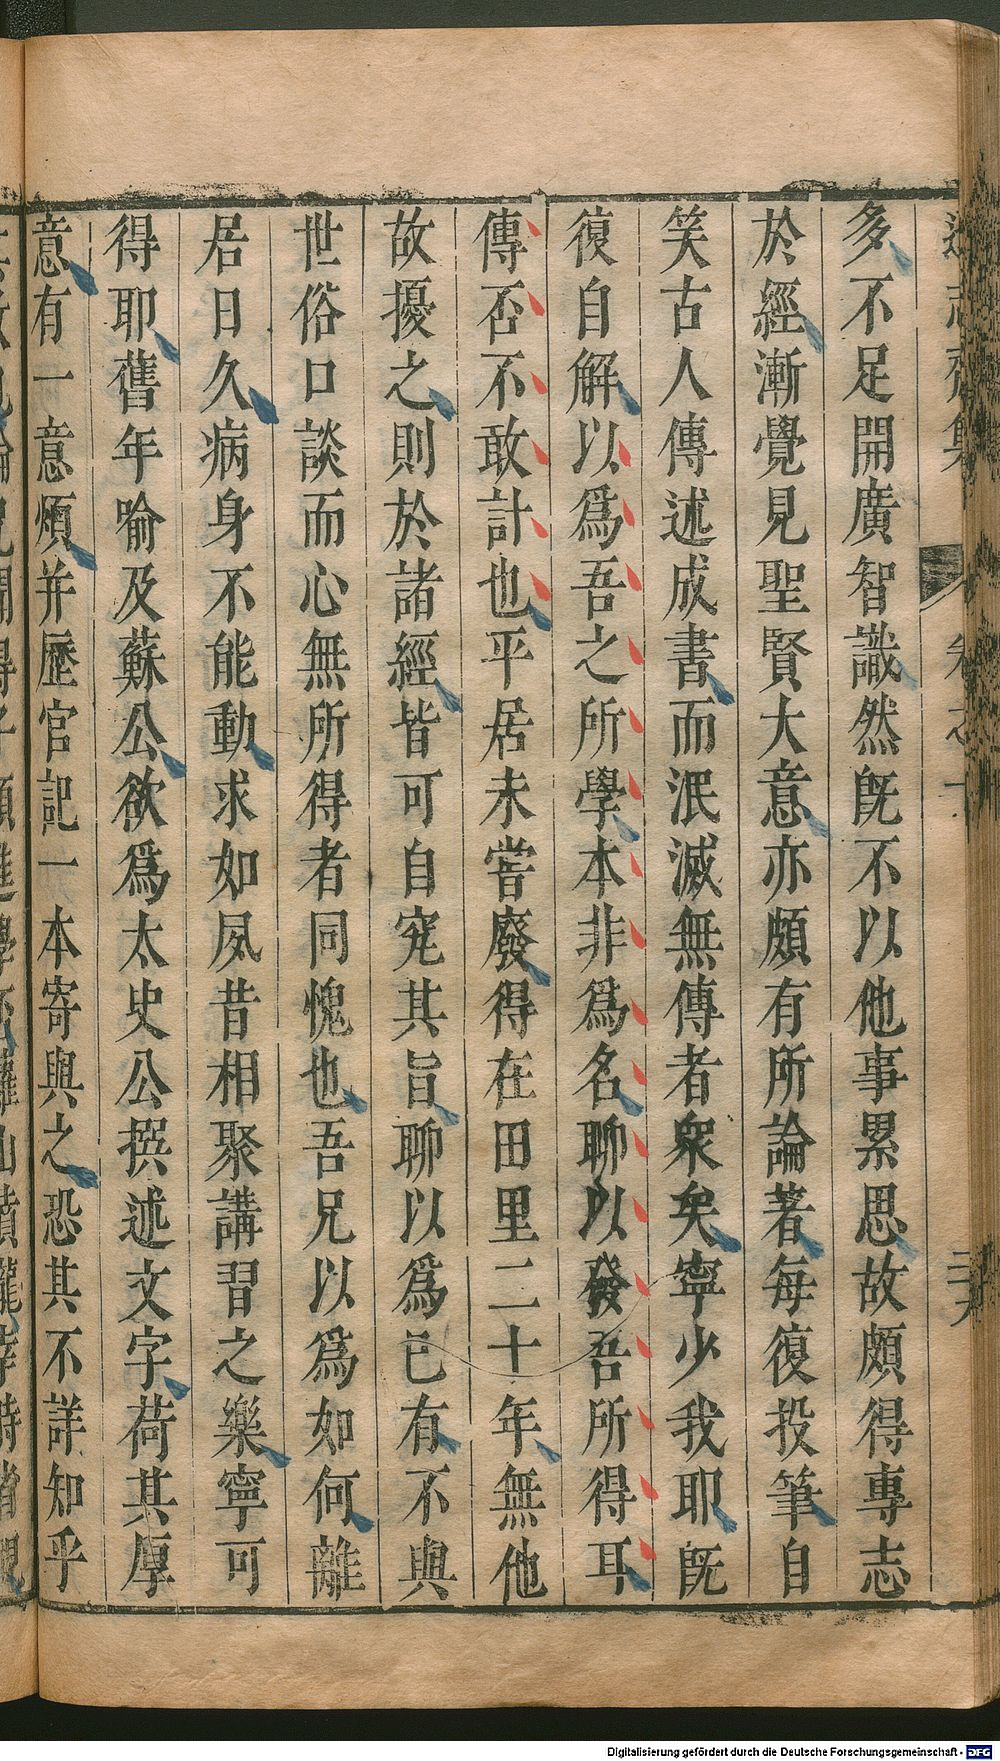 遜志齋集
卷之十
二十六
多不足開廣智識然旣不以他事累思故頗得專志
於經漸覺見聖賢大意亦頗有所論著每復投筆自
笑古人傳述成書而泯滅無傳者衆矣寧少我耶旣
復自解以爲吾之所學本非爲名聊以發吾所得耳
傳否不敢計也平居未嘗廢得在田里二十年無他
故擾之則於諸經皆可自究其旨聊以爲已有不與
世俗口談而心無所得者同愧也吾兄以爲如何離
居日久病身不能動求如夙昔相聚講習之樂寧可
得耶舊年喻及蘇公欲爲太史公撰述文字荷其厚
意有一意煩并歷官記一本寄與之恐其不詳知乎
Digitalisierung gefördert durch die Deutsche Forschungsgemeinschaft - DFG